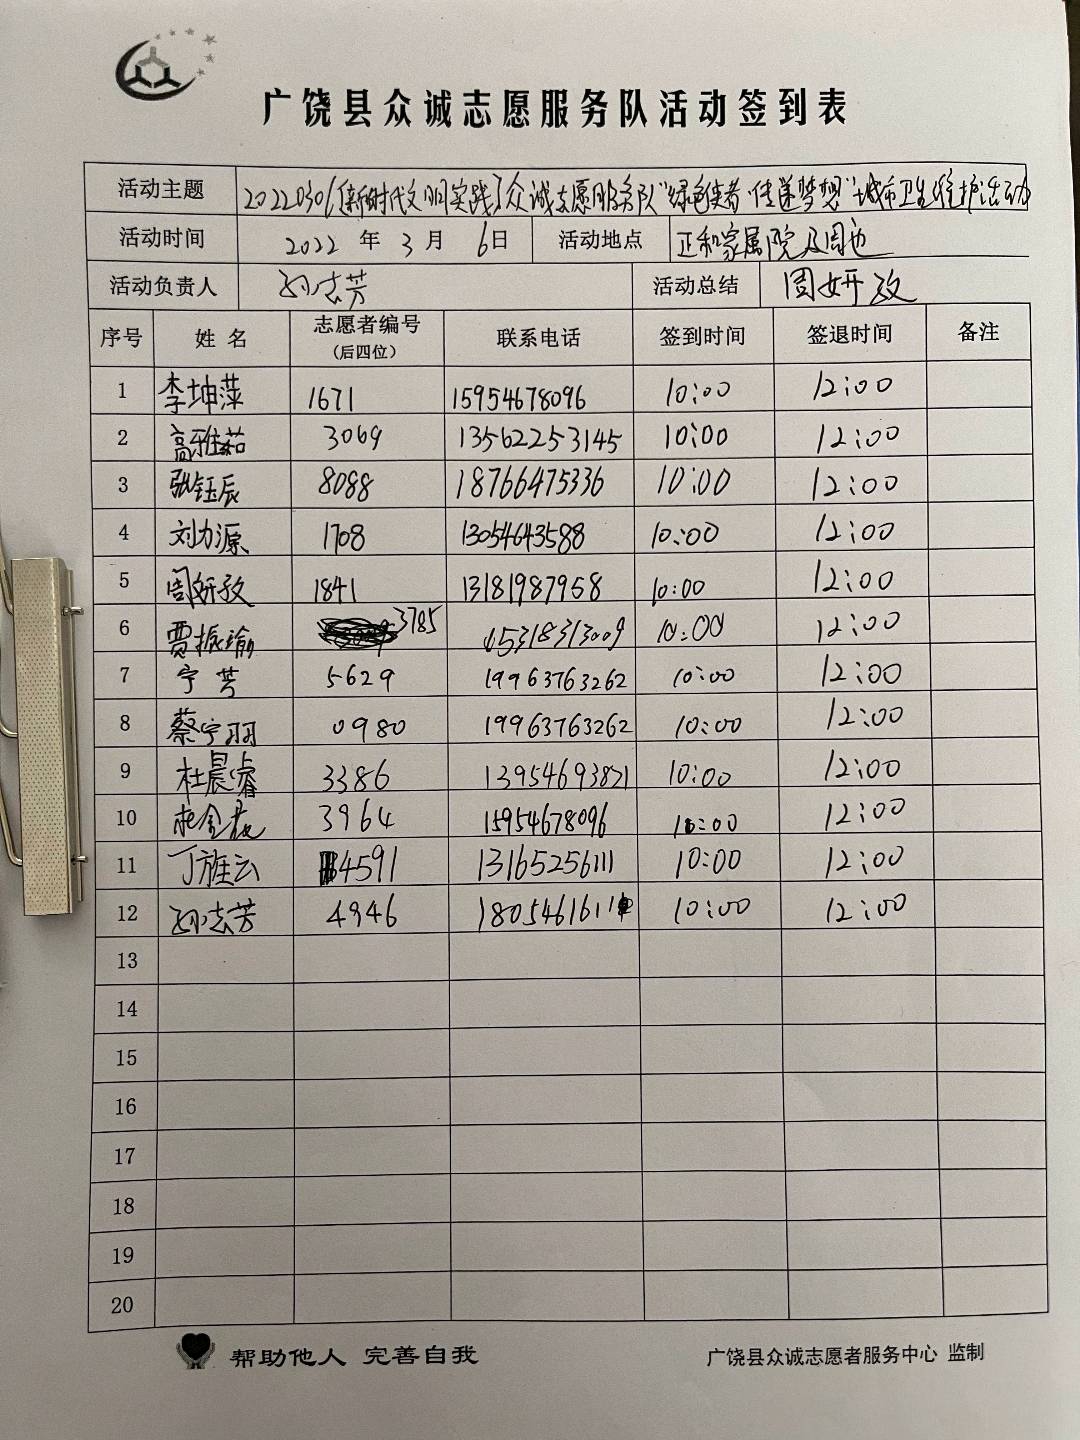 广饶县众诚志愿服务队活动签到表
活动主题 20220306〔新时代文明实践〕众诚志愿服务队“绿色使者 传递梦想”城市卫生维护活动
活动时间 2022 年 3 月 6日 活动地点 正和家属院及周边
活动负责人 孙志芳 活动总结 周妍孜
序号 姓 名 志愿者编号 联系电话 签到时间 签退时间 备注
(后四位)
1 李坤萍 1671 15954678096 10:00 12:00
2 高雅茹 3069 13562253145 10:00 12:00
3 张钰辰 8088 18766475336 10:00 12:00
4 刘力源 1708 13054643588 10:00 12:00
5 周妍孜 1841 13181987958 10:00 12:00
6 贾振瑜 3785 15318313009 10:00 12:00
7 宁芳 5629 19963763262 10:00 12:00
8 蔡宁羽 0980 19963763262 10:00 12:00
9 杜晨睿 3386 13954693821 10:00 12:00
10 3964 15954678096 10:00 12:00
11 丁旌云 4591 13165256111 10:00 12:00
12 孙志芳 4946 1805461611 10:00 12:00
13
14
15
16
17
18
19
20
帮助他人 完善自我 广饶县众诚志愿者服务中心 监制